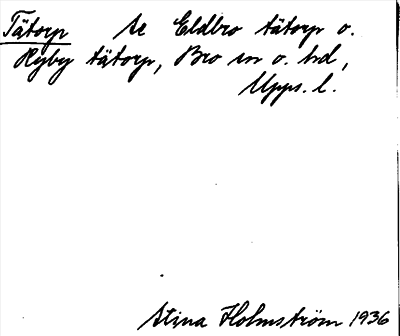 Tätorp Se Eldbro tätorp o.
Ryby tätorp, Bro sn o. hd,
Upps. l.
Stina Holmström 1936